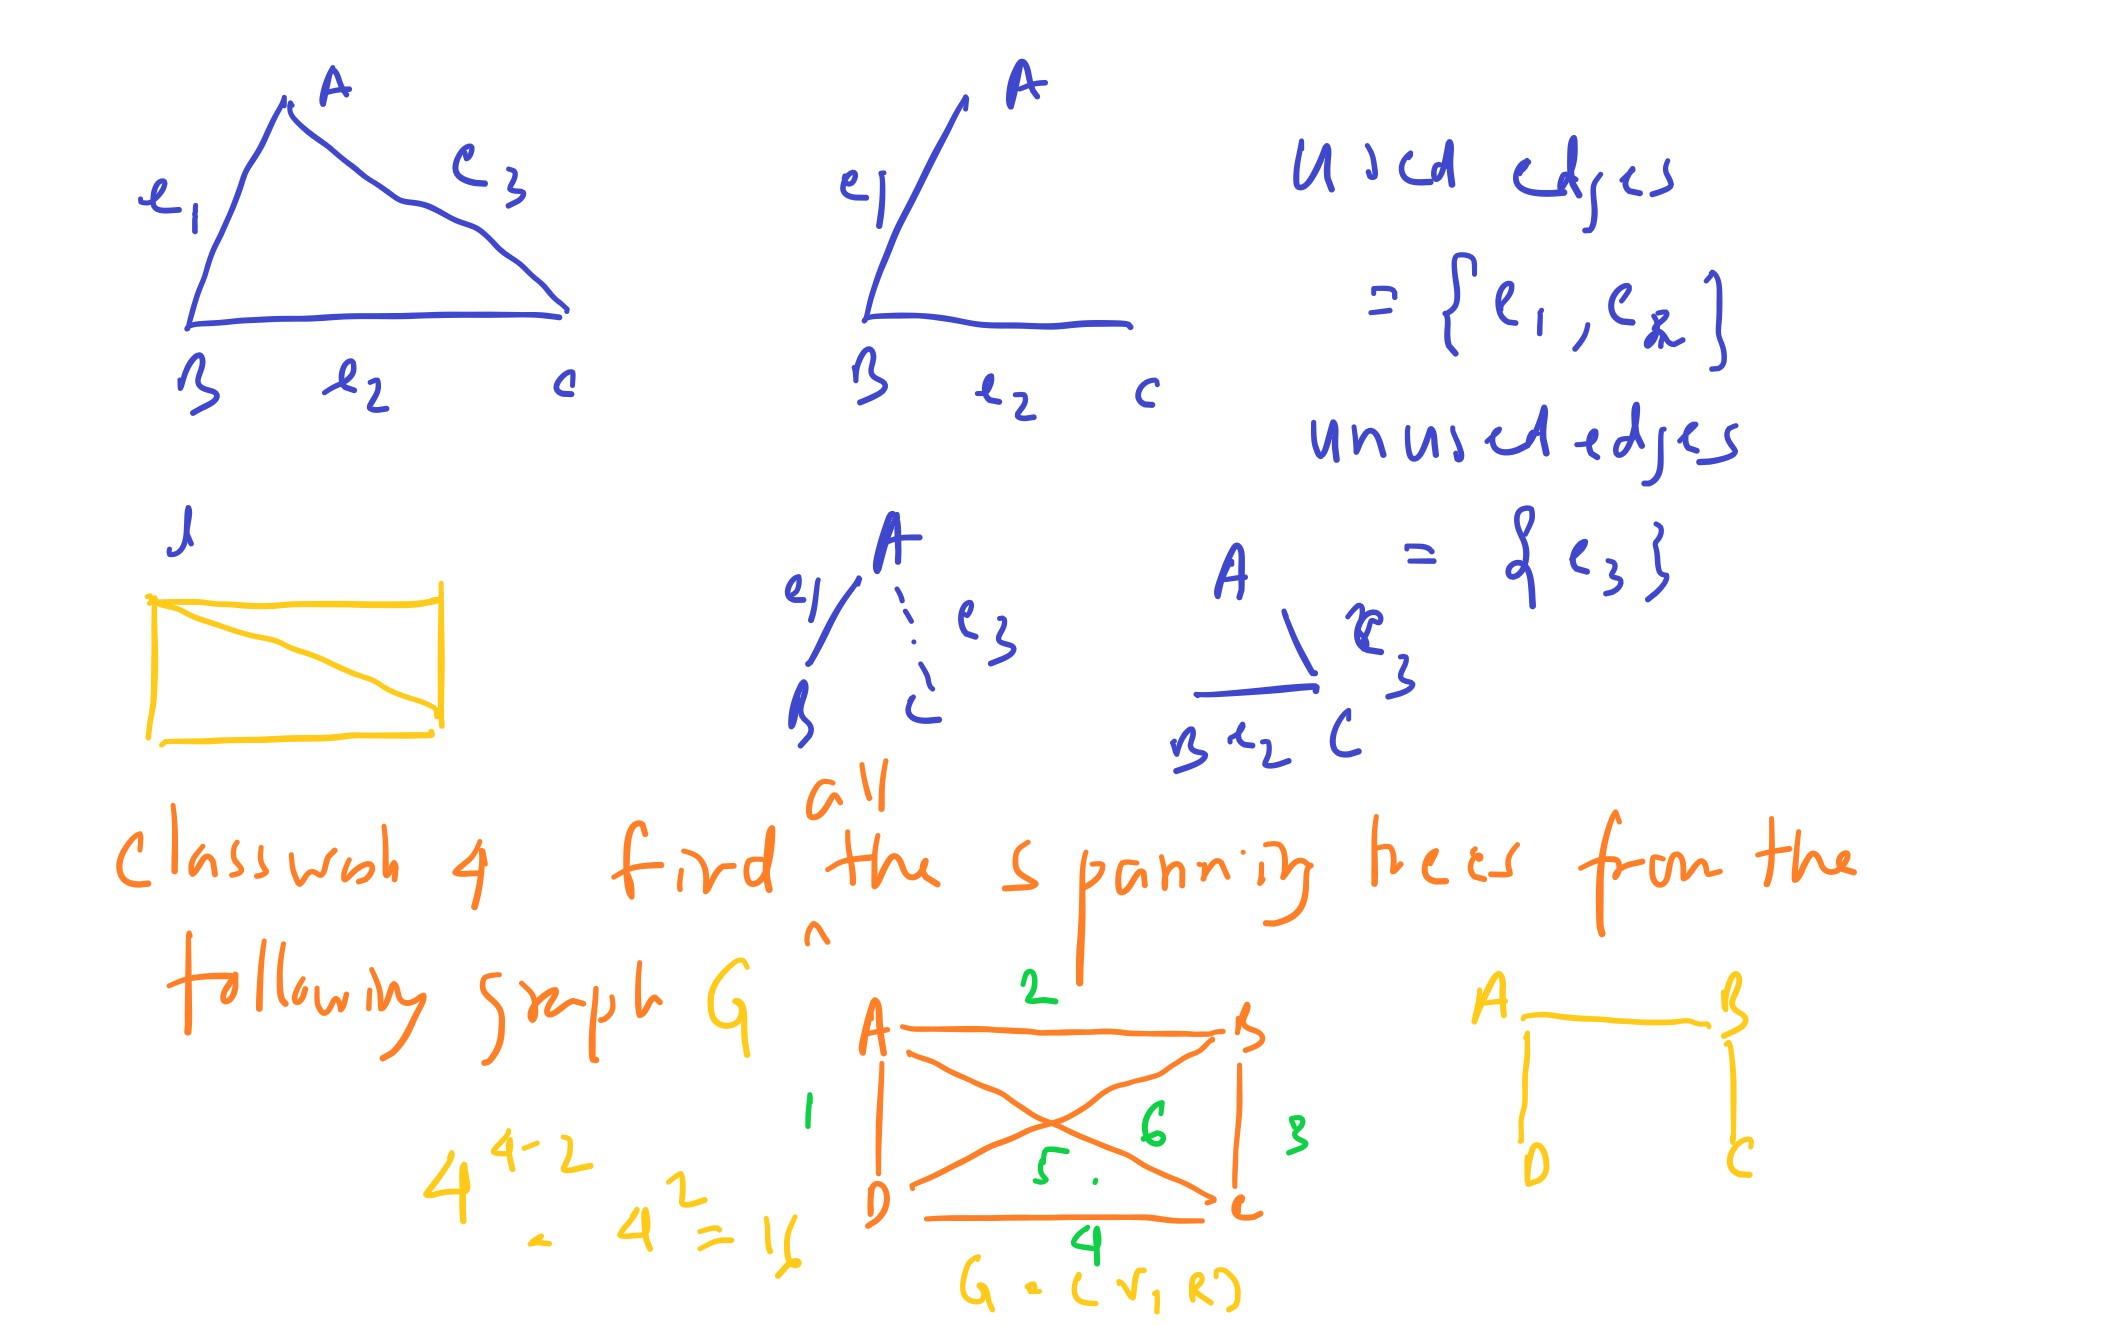 A
e1
e3
B
e2
C
A
e1
B
e2
C
used edges
= {e1, e2}
unused edges
= {e3}
A
e1
e3
B
C
A
e3
B e2 C
all
Classwork 4 find the spanning trees from the
^
following graph G
2
A B
1 6 3
5 .
D C
4
G = (V, E)
4^4-2
= 4^2 = 16
A B
D C